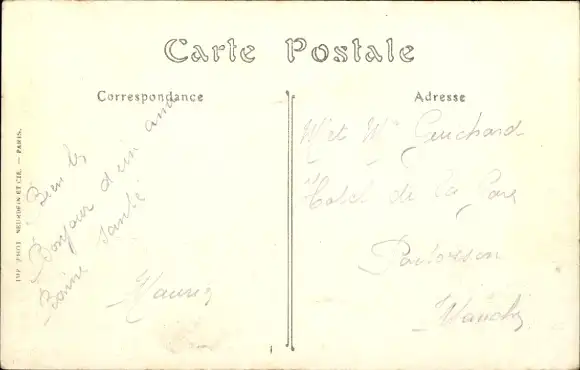 Carte Postale
Correspondance
Adresse
IMP. PHOT. NEURDEIN ET CIE. — PARIS.
Bien les
Bonjour d'un ami
Bonne santé
Maurice
Mr et Me Guichard
Hotel de la Gare
Pontorson
Manche